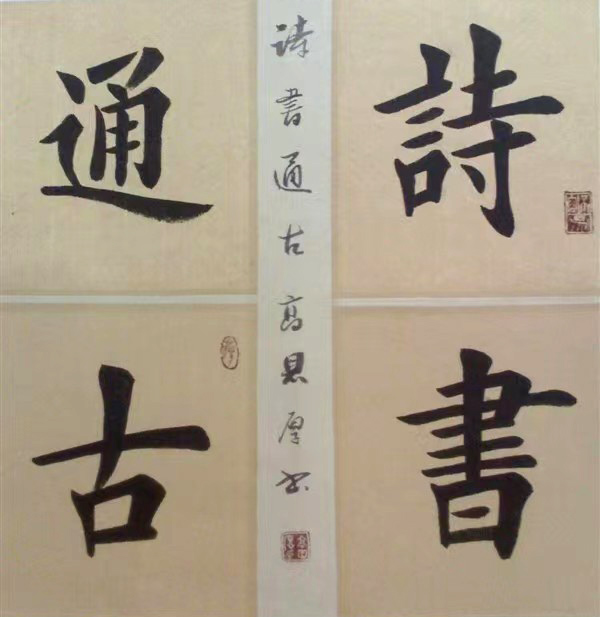 詩書
通古
詩書通古高恩厚书